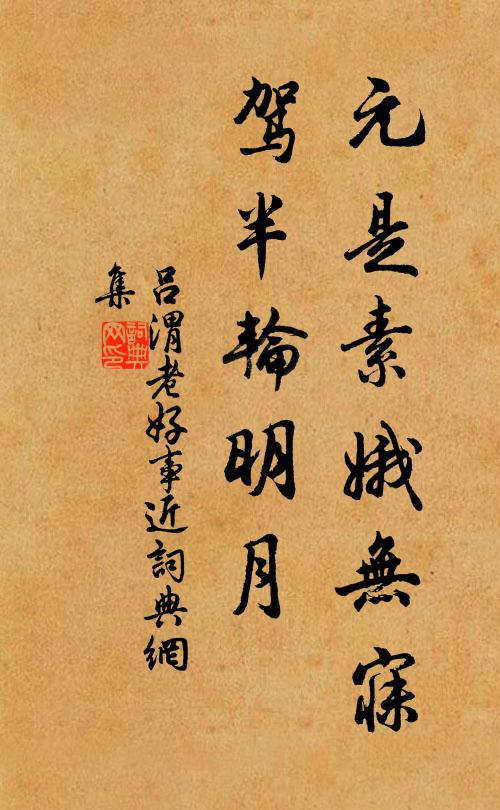 元是素娥無寐
駕半輪明月
呂渭老好事近詞典網
集
詞典
网印